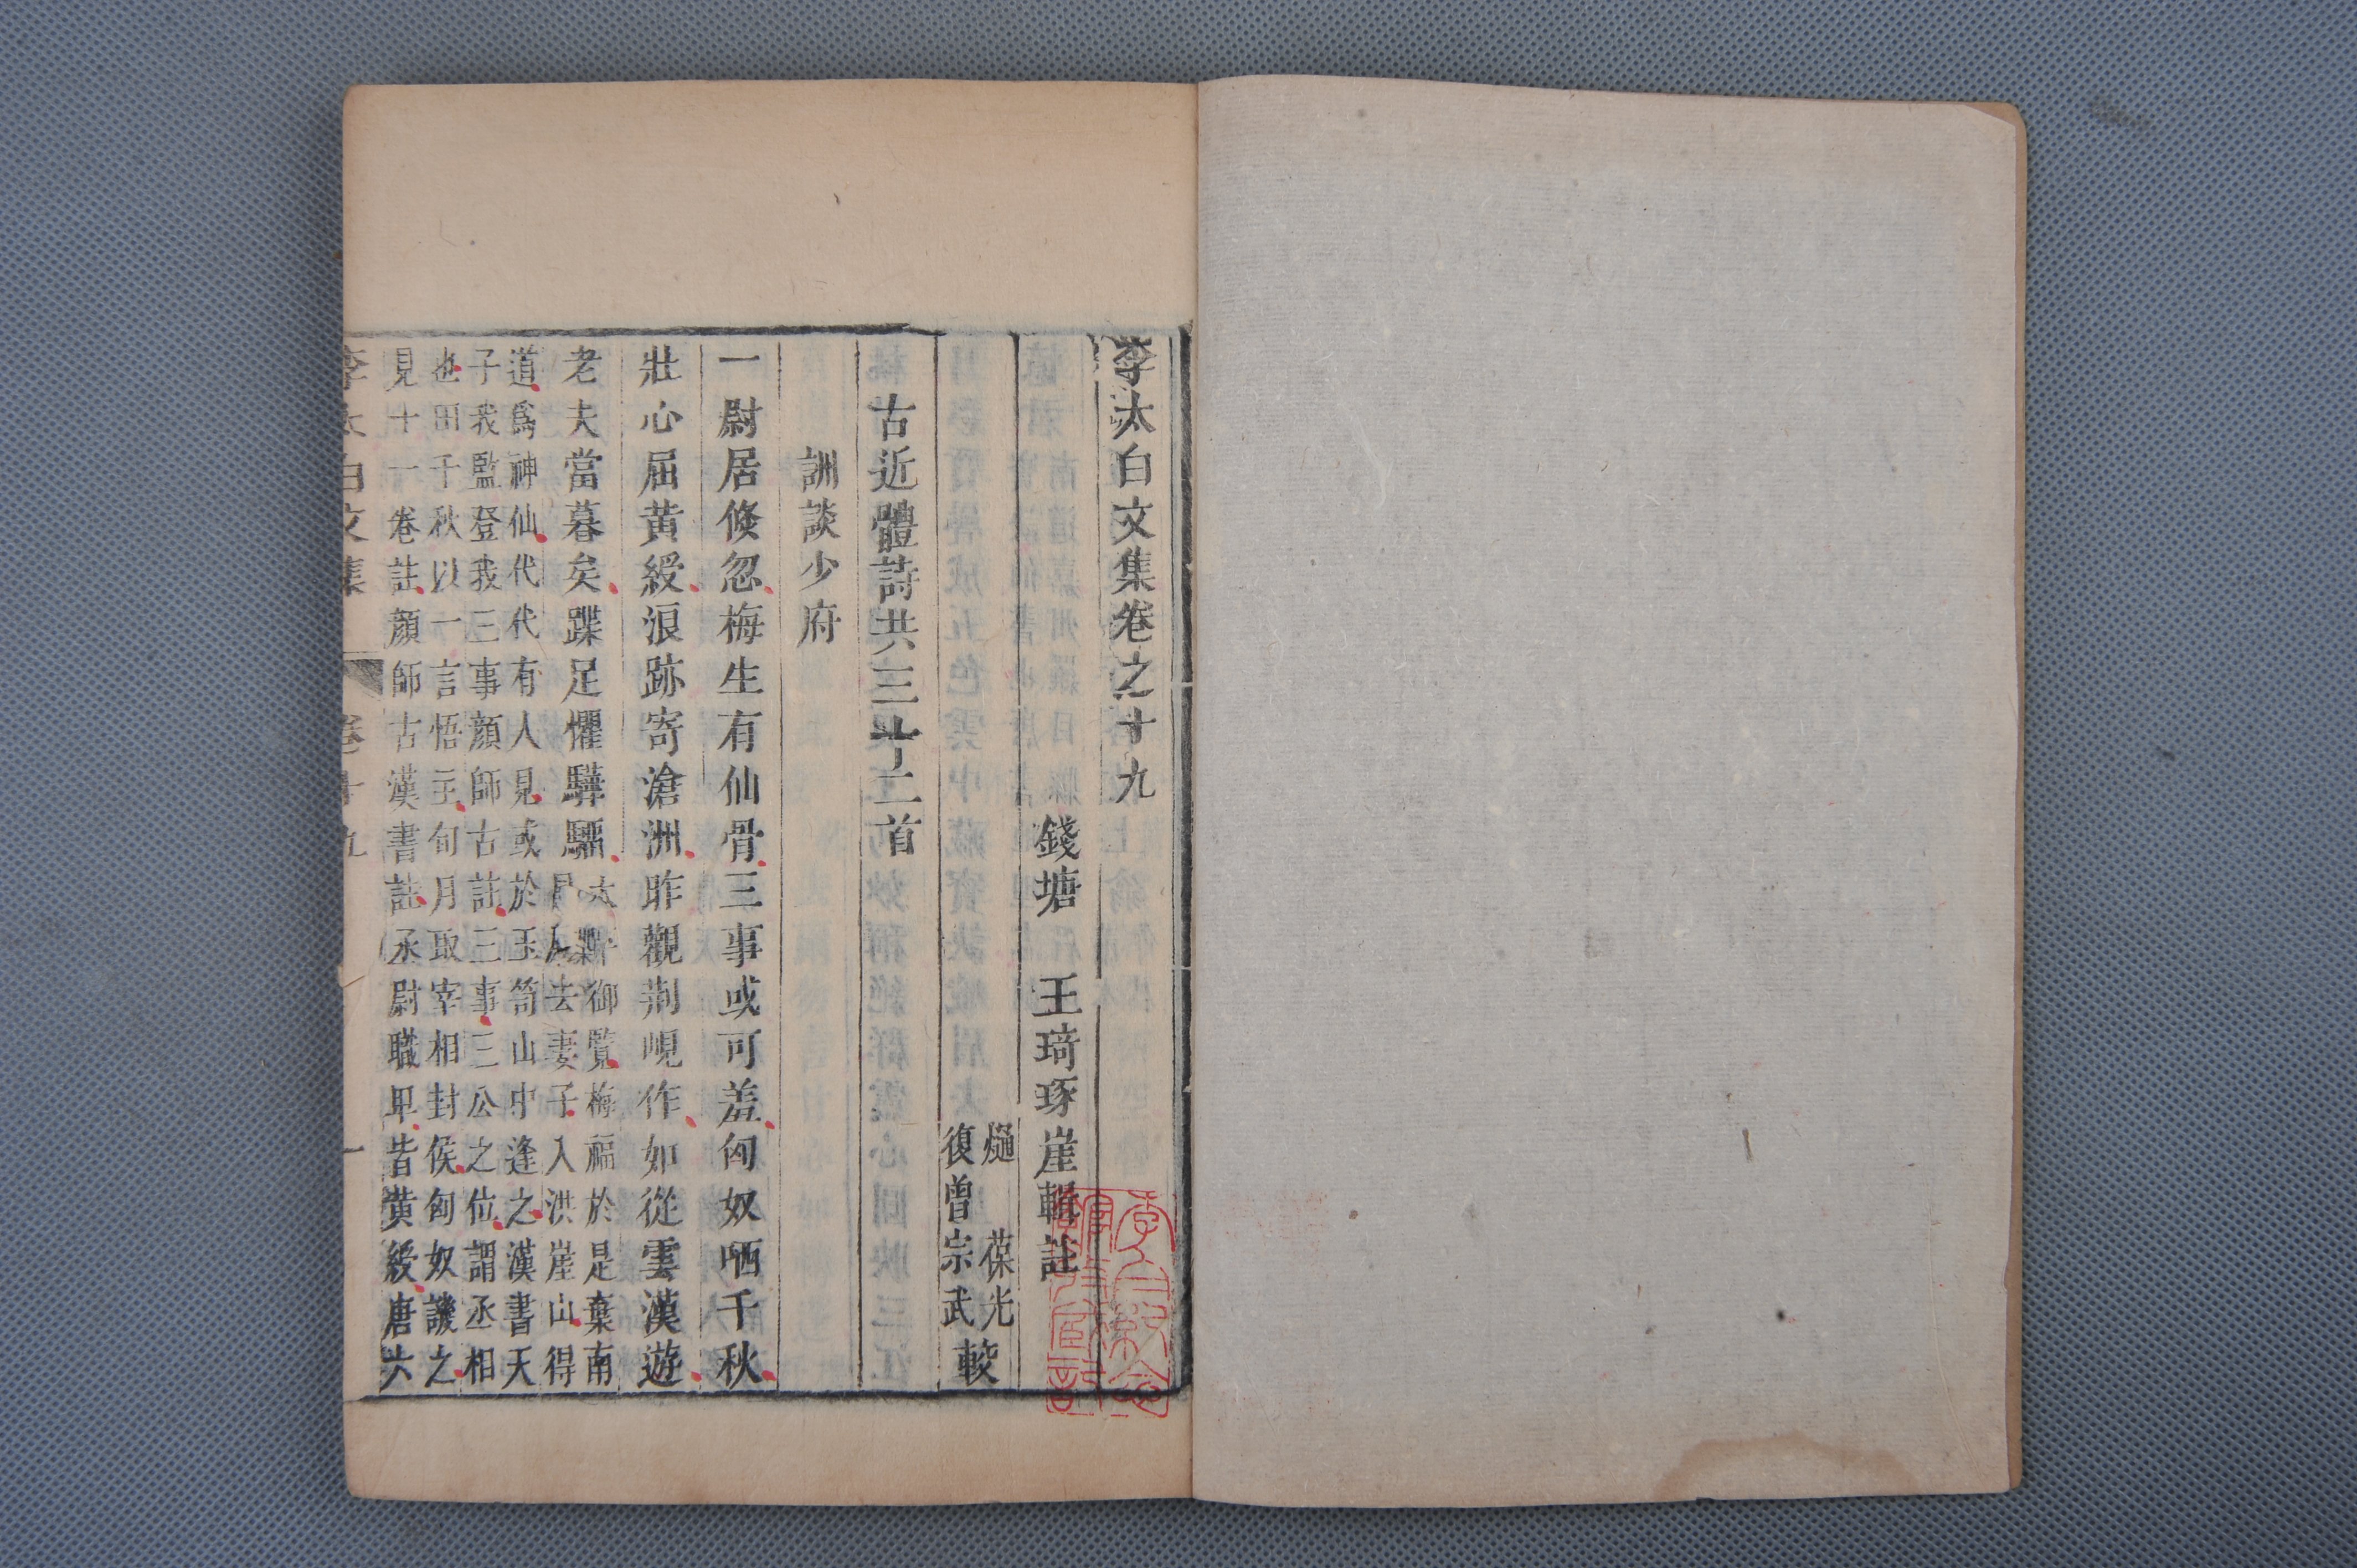 李太白文集卷之十九
錢塘 王琦琢崖輯註
燧 葆光
復曾宗武 較
古近體詩共三十二首
訓談少府
一尉居倏忽梅生有仙骨三事或可羞匈奴哂千秋
壯心屈黃綬浪跡寄滄洲昨觀荆峴作如從雲漢遊
老夫當暮矣蹀足懼驊騮
太平御覽梅福於是棄南
昌去妻子入洪崖山得
道爲神仙代代有人見或於玉笥山中逢之漢書天
子我監登我三事顔師古註三事三公之位謂丞相
也田千秋以一言悟主旬月取宰相封侯匈奴譏之
見十一卷註顔師古漢書註丞尉職卑皆黃綬唐六
李太白文集 卷十九 一